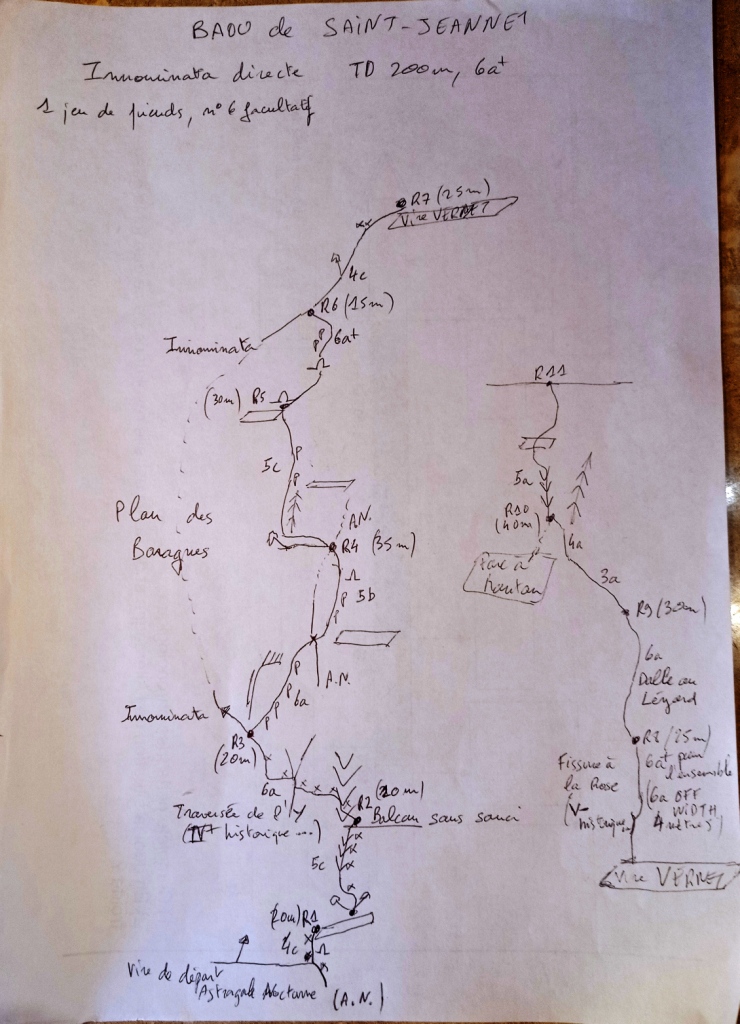 BAOU de SAINT-JEANNET
Innominata directe TD 200m, 6a+
1 jeu de friends, n° 6 facultatif
R7 (25m)
Vire VERNET
4c
R6 (15m)
Innominata
6a+
(30m) R5
5c
Plan des
Baragnes
A.N.
R4 (35m)
5b
A.N.
6a
Innominata
R3
(20m)
6a
Traversée de l'Y
(IV+ historique...)
R2 (20m)
Balcon sans souci
5c
(20m) R1
4c
Vire de départ
Astragale Nocturne (A.N.)
R11
5a
R10
(40m)
4a
Parc à
mouton
3a
R9 (30m)
6a
Dalle au
Lézard
R8 (25m)
6a+ pour
l'ensemble
Fissure à
la Rose
(V-
historique)
(6a OFF
WIDTH
4 mètres)
Vire VERNET